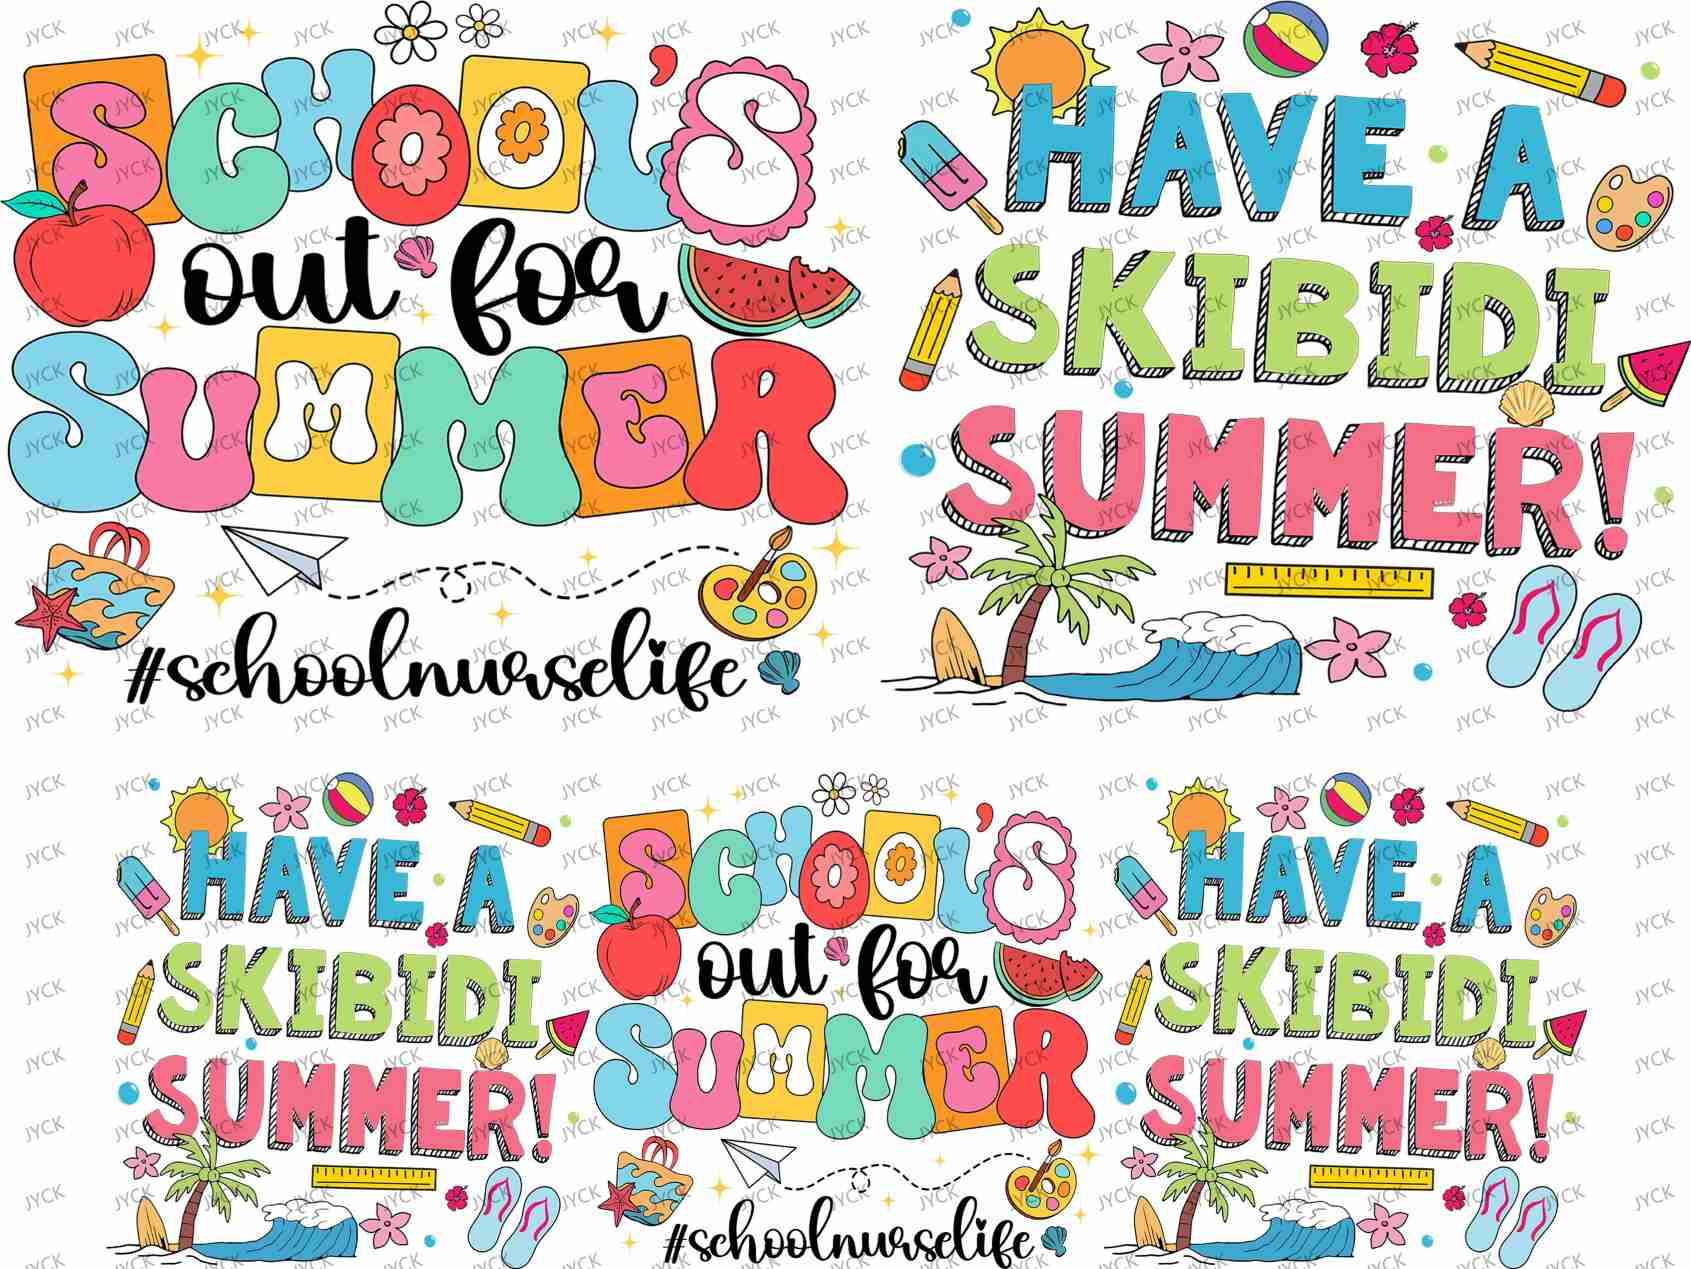 SCHOOL'S
out for
SUMMER
#schoolnurselife
HAVE A
SKIBIDI
SUMMER!
HAVE A
SKIBIDI
SUMMER!
SCHOOL'S
out for
SUMMER
#schoolnurselife
HAVE A
SKIBIDI
SUMMER!
JYCK